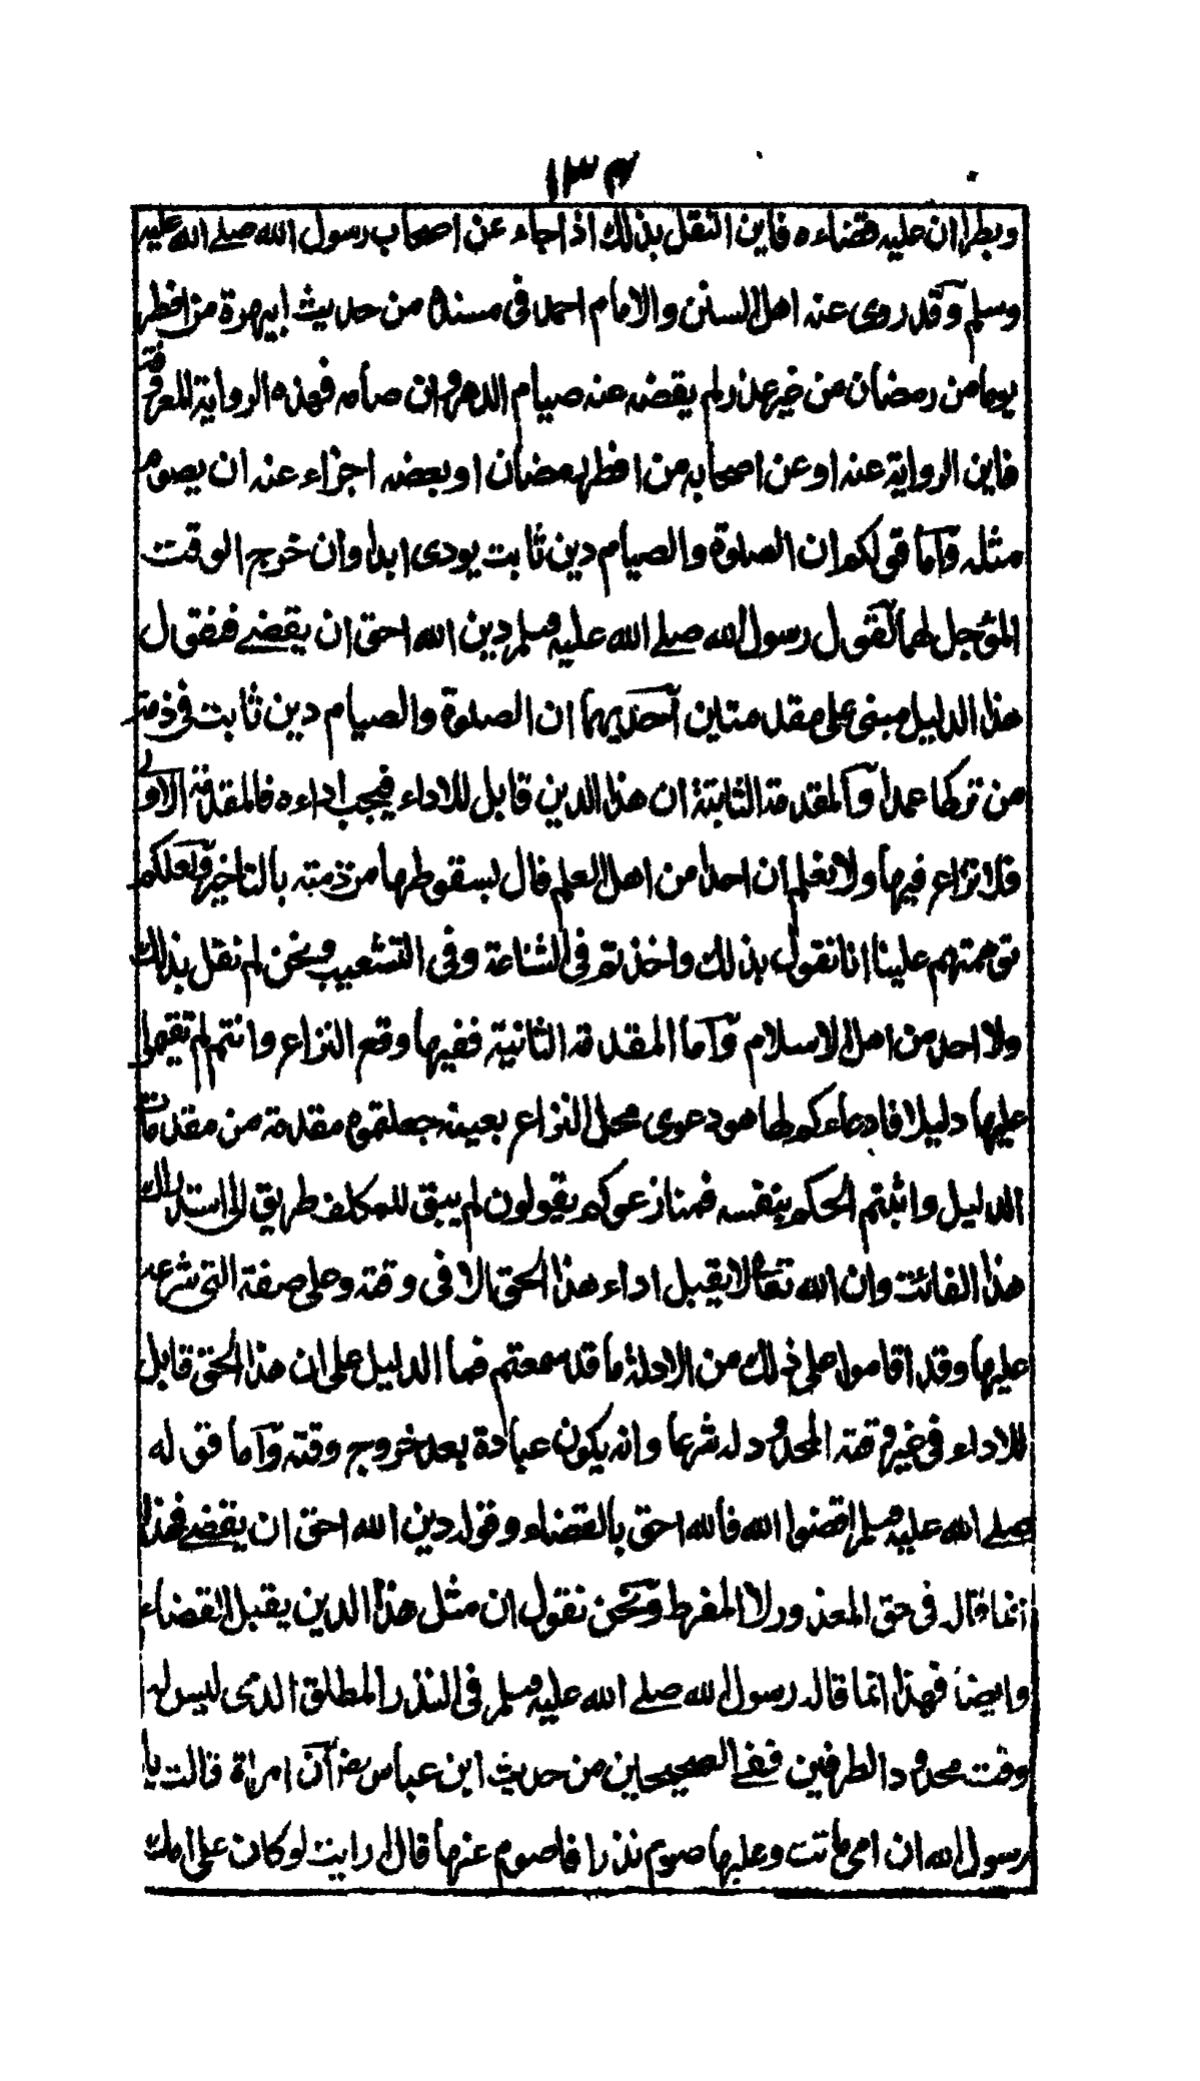 ١٣٤
وبطران عليه قضاءه فاين النقل بذلك اذا جاء عن اصحاب رسول الله صلے الله عليه
وسلم وقد روى عنه اهل السنن والامام احمد فى مسنده من حديث ابى هريرة من افطر
يوما من رمضان من غير عذر لم يقضه عنه صيام الدهر وان صامه فهذه الرواية المعروفة
فاين الرواية عنه او عن اصحابه من افطر رمضان او بعضه اجزاء عنه ان يصوم
مثله وآما قولكم ان الصلوة والصيام دين ثابت يودى ابدا وان خرج الوقت
المؤجل لهما لقول رسول الله صلے الله عليه وسلم دين الله احق ان يقضے فنقول
هذا الدليل مبنى على مقدمتاين آحديهما ان الصلوة والصيام دين ثابت فى ذمة
من تركها عمدا وآلمقدمة الثانية ان هذا الدين قابل للاداء فيجب اداءه فالمقدمة الاولى
فلا نزاع فيها ولا نعلم ان احدا من اهل العلم قال بسقوطها من ذمته بالتاخير ولعلكم
توهمتهم علينا انا نقول بذلك واخذتم فى الشناعة وفى التشعيب ونحن لم نقل بذلك
ولا احد من اهل الاسلام وآما المقدمة الثانية ففيها وقع النزاع وانتم لم تقيموا
عليها دليلا فادعاءكم لها هو دعوى محل النزاع بعينه جعلتموه مقدمة من مقدمات
الدليل واثبتم الحكم بنفسه فمنازعوكم يقولون لم يبق للمكلف طريق الى استدراك
هذا الفائت وان الله تعالى لا يقبل اداء هذا الحق الا فى وقته وعلى صفة التى شرعه
عليها وقد اقاموا على ذلك من الادلة ما قد سمعتم فما الدليل على ان هذا الحق قابل
للاداء فى غير وقته المحدود له شرعا وانه يكون عبادة بعد خروج وقته وآما قوله
صلے الله عليه وسلم اقضوا الله فالله احق بالقضاء وقوله دين الله احق ان يقضے فهذا
انما قاله فى حق المعذور لا المفرط ونحن نقول ان مثل هذا الدين يقبل القضاء
وايضا فهذا انما قاله رسول الله صلے الله عليه وسلم فى النذر المطلق الذى ليس له
وقت محدود الطرفين ففے الصحيحاين من حديث ابن عباس رض آن امراة قالت يا
رسول الله ان امى ماتت وعليها صوم نذر افاصوم عنها قال ارايت لو كان على امك